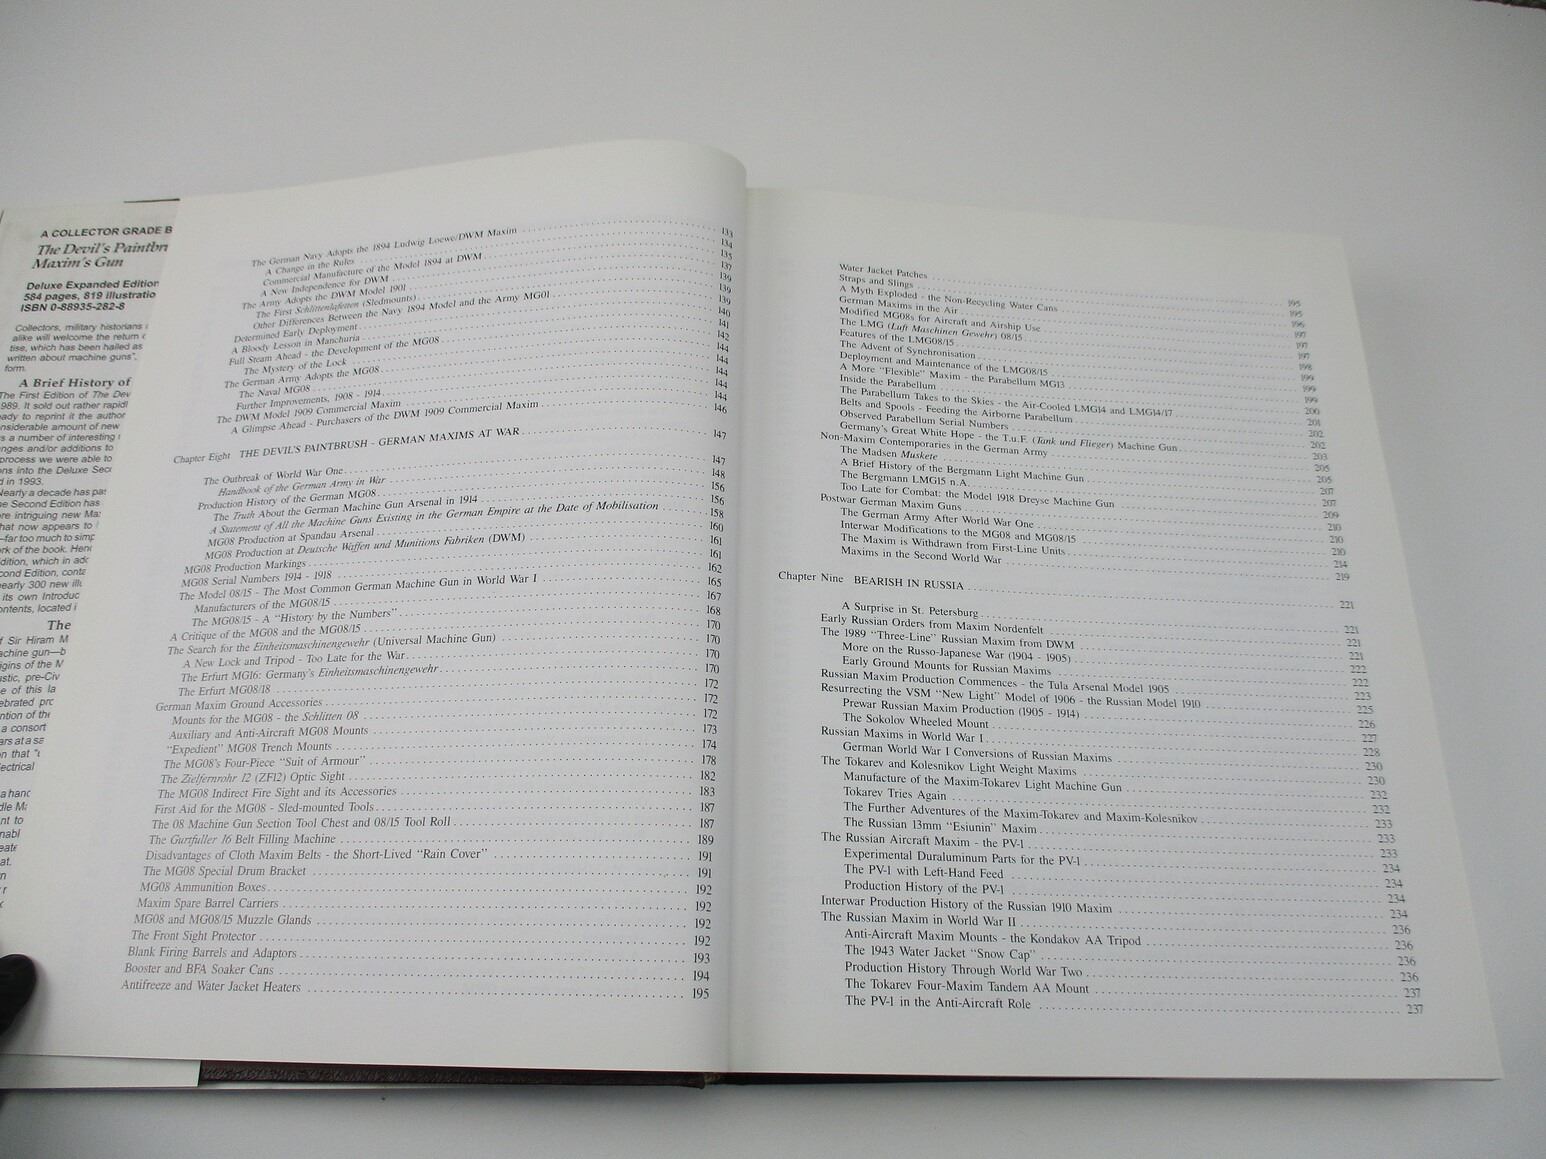 A COLLECTOR GRADE B
The Devil's Paintbr
Maxim's Gun
Deluxe Expanded Edition
584 pages, 819 illustratio
ISBN 0-88935-282-8
Collectors, military historians
alike will welcome the return
tise, which has been hailed as
written about machine guns".
form.
A Brief History of
The First Edition of The Dev
989. It sold out rather rapidl
ady to reprint it the author
nsiderable amount of new
s a number of interesting
nges and/or additions to
process we were able to
ons into the Deluxe Sec
d in 1993.
Nearly a decade has pas
e Second Edition has
re intriguing new Max
hat now appears to
—far too much to simp
rk of the book. Henc
dition, which in add
cond Edition, conta
early 300 new illu
its own Introduc
ontents, located i
The
f Sir Hiram M
achine gun—b
igins of the M
stic, pre-Civ
e of this la
ebrated pro
ntion of the
a consort
ars at a sa
on that
lectrical
a hand
dle Ma
nt to
nabl
eate
at.
The German Navy Adopts the 1894 Ludwig Loewe/DWM Maxim 133
A Change in the Rules 134
Commercial Manufacture of the Model 1894 at DWM 135
A New Independence for DWM 137
The Army Adopts the DWM Model 1901 139
The First Schlittenlafetten (Sledmounts) 139
Other Differences Between the Navy 1894 Model and the Army MG01 139
Determined Early Deployment 140
A Bloody Lesson in Manchuria 141
Full Steam Ahead - the Development of the MG08 142
The Mystery of the Lock 144
The German Army Adopts the MG08 144
The Naval MG08 144
Further Improvements, 1908 - 1914 144
The DWM Model 1909 Commercial Maxim 144
A Glimpse Ahead - Purchasers of the DWM 1909 Commercial Maxim 146
Chapter Eight THE DEVIL'S PAINTBRUSH - GERMAN MAXIMS AT WAR 147
The Outbreak of World War One 147
Handbook of the German Army in War 148
Production History of the German MG08 156
The Truth About the German Machine Gun Arsenal in 1914 156
A Statement of All the Machine Guns Existing in the German Empire at the Date of Mobilisation 158
MG08 Production at Spandau Arsenal 160
MG08 Production at Deutsche Waffen und Munitions Fabriken (DWM) 161
MG08 Production Markings 161
MG08 Serial Numbers 1914 - 1918 162
The Model 08/15 - The Most Common German Machine Gun in World War I 165
Manufacturers of the MG08/15 167
The MG08/15 - A "History by the Numbers" 168
A Critique of the MG08 and the MG08/15 170
The Search for the Einheitsmaschinengewehr (Universal Machine Gun) 170
A New Lock and Tripod - Too Late for the War 170
The Erfurt MG16: Germany's Einheitsmaschinengewehr 170
The Erfurt MG08/18 172
German Maxim Ground Accessories 172
Mounts for the MG08 - the Schlitten 08 172
Auxiliary and Anti-Aircraft MG08 Mounts 173
"Expedient" MG08 Trench Mounts 174
The MG08's Four-Piece "Suit of Armour" 178
The Zielfernrohr 12 (ZF12) Optic Sight 182
The MG08 Indirect Fire Sight and its Accessories 183
First Aid for the MG08 - Sled-mounted Tools 187
The 08 Machine Gun Section Tool Chest and 08/15 Tool Roll 187
The Gurtfuller 16 Belt Filling Machine 189
Disadvantages of Cloth Maxim Belts - the Short-Lived "Rain Cover" 191
The MG08 Special Drum Bracket 191
MG08 Ammunition Boxes 192
Maxim Spare Barrel Carriers 192
MG08 and MG08/15 Muzzle Glands 192
The Front Sight Protector 192
Blank Firing Barrels and Adaptors 193
Booster and BFA Soaker Cans 194
Antifreeze and Water Jacket Heaters 195
Water Jacket Patches 195
Straps and Slings 195
A Myth Exploded - the Non-Recycling Water Cans 196
German Maxims in the Air 197
Modified MG08s for Aircraft and Airship Use 197
The LMG (Luft Maschinen Gewehr) 08/15 197
Features of the LMG08/15 198
The Advent of Synchronisation 199
Deployment and Maintenance of the LMG08/15 199
A More "Flexible" Maxim - the Parabellum MG13 199
Inside the Parabellum 200
The Parabellum Takes to the Skies - the Air-Cooled LMG14 and LMG14/17 201
Belts and Spools - Feeding the Airborne Parabellum 202
Observed Parabellum Serial Numbers 202
Germany's Great White Hope - the T.u.F. (Tank und Flieger) Machine Gun 203
Non-Maxim Contemporaries in the German Army 205
The Madsen Muskete 205
A Brief History of the Bergmann Light Machine Gun 207
The Bergmann LMG15 n.A. 207
Too Late for Combat: the Model 1918 Dreyse Machine Gun 209
Postwar German Maxim Guns 210
The German Army After World War One 210
Interwar Modifications to the MG08 and MG08/15 210
The Maxim is Withdrawn from First-Line Units 214
Maxims in the Second World War 219
Chapter Nine BEARISH IN RUSSIA 221
A Surprise in St. Petersburg 221
Early Russian Orders from Maxim Nordenfelt 221
The 1989 "Three-Line" Russian Maxim from DWM 221
More on the Russo-Japanese War (1904 - 1905) 222
Early Ground Mounts for Russian Maxims 222
Russian Maxim Production Commences - the Tula Arsenal Model 1905 223
Resurrecting the VSM "New Light" Model of 1906 - the Russian Model 1910 225
Prewar Russian Maxim Production (1905 - 1914) 226
The Sokolov Wheeled Mount 227
Russian Maxims in World War I 228
German World War I Conversions of Russian Maxims 230
The Tokarev and Kolesnikov Light Weight Maxims 230
Manufacture of the Maxim-Tokarev Light Machine Gun 232
Tokarev Tries Again 232
The Further Adventures of the Maxim-Tokarev and Maxim-Kolesnikov 233
The Russian 13mm "Esiunin" Maxim 233
The Russian Aircraft Maxim - the PV-1 233
Experimental Duraluminum Parts for the PV-1 234
The PV-1 with Left-Hand Feed 234
Production History of the PV-1 234
Interwar Production History of the Russian 1910 Maxim 234
The Russian Maxim in World War II 236
Anti-Aircraft Maxim Mounts - the Kondakov AA Tripod 236
The 1943 Water Jacket "Snow Cap" 236
Production History Through World War Two 236
The Tokarev Four-Maxim Tandem AA Mount 237
The PV-1 in the Anti-Aircraft Role 237